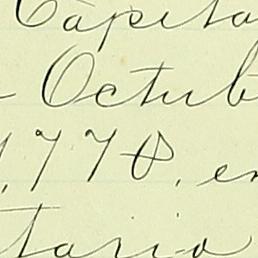 Capita
- Octub
1,778, en
tario